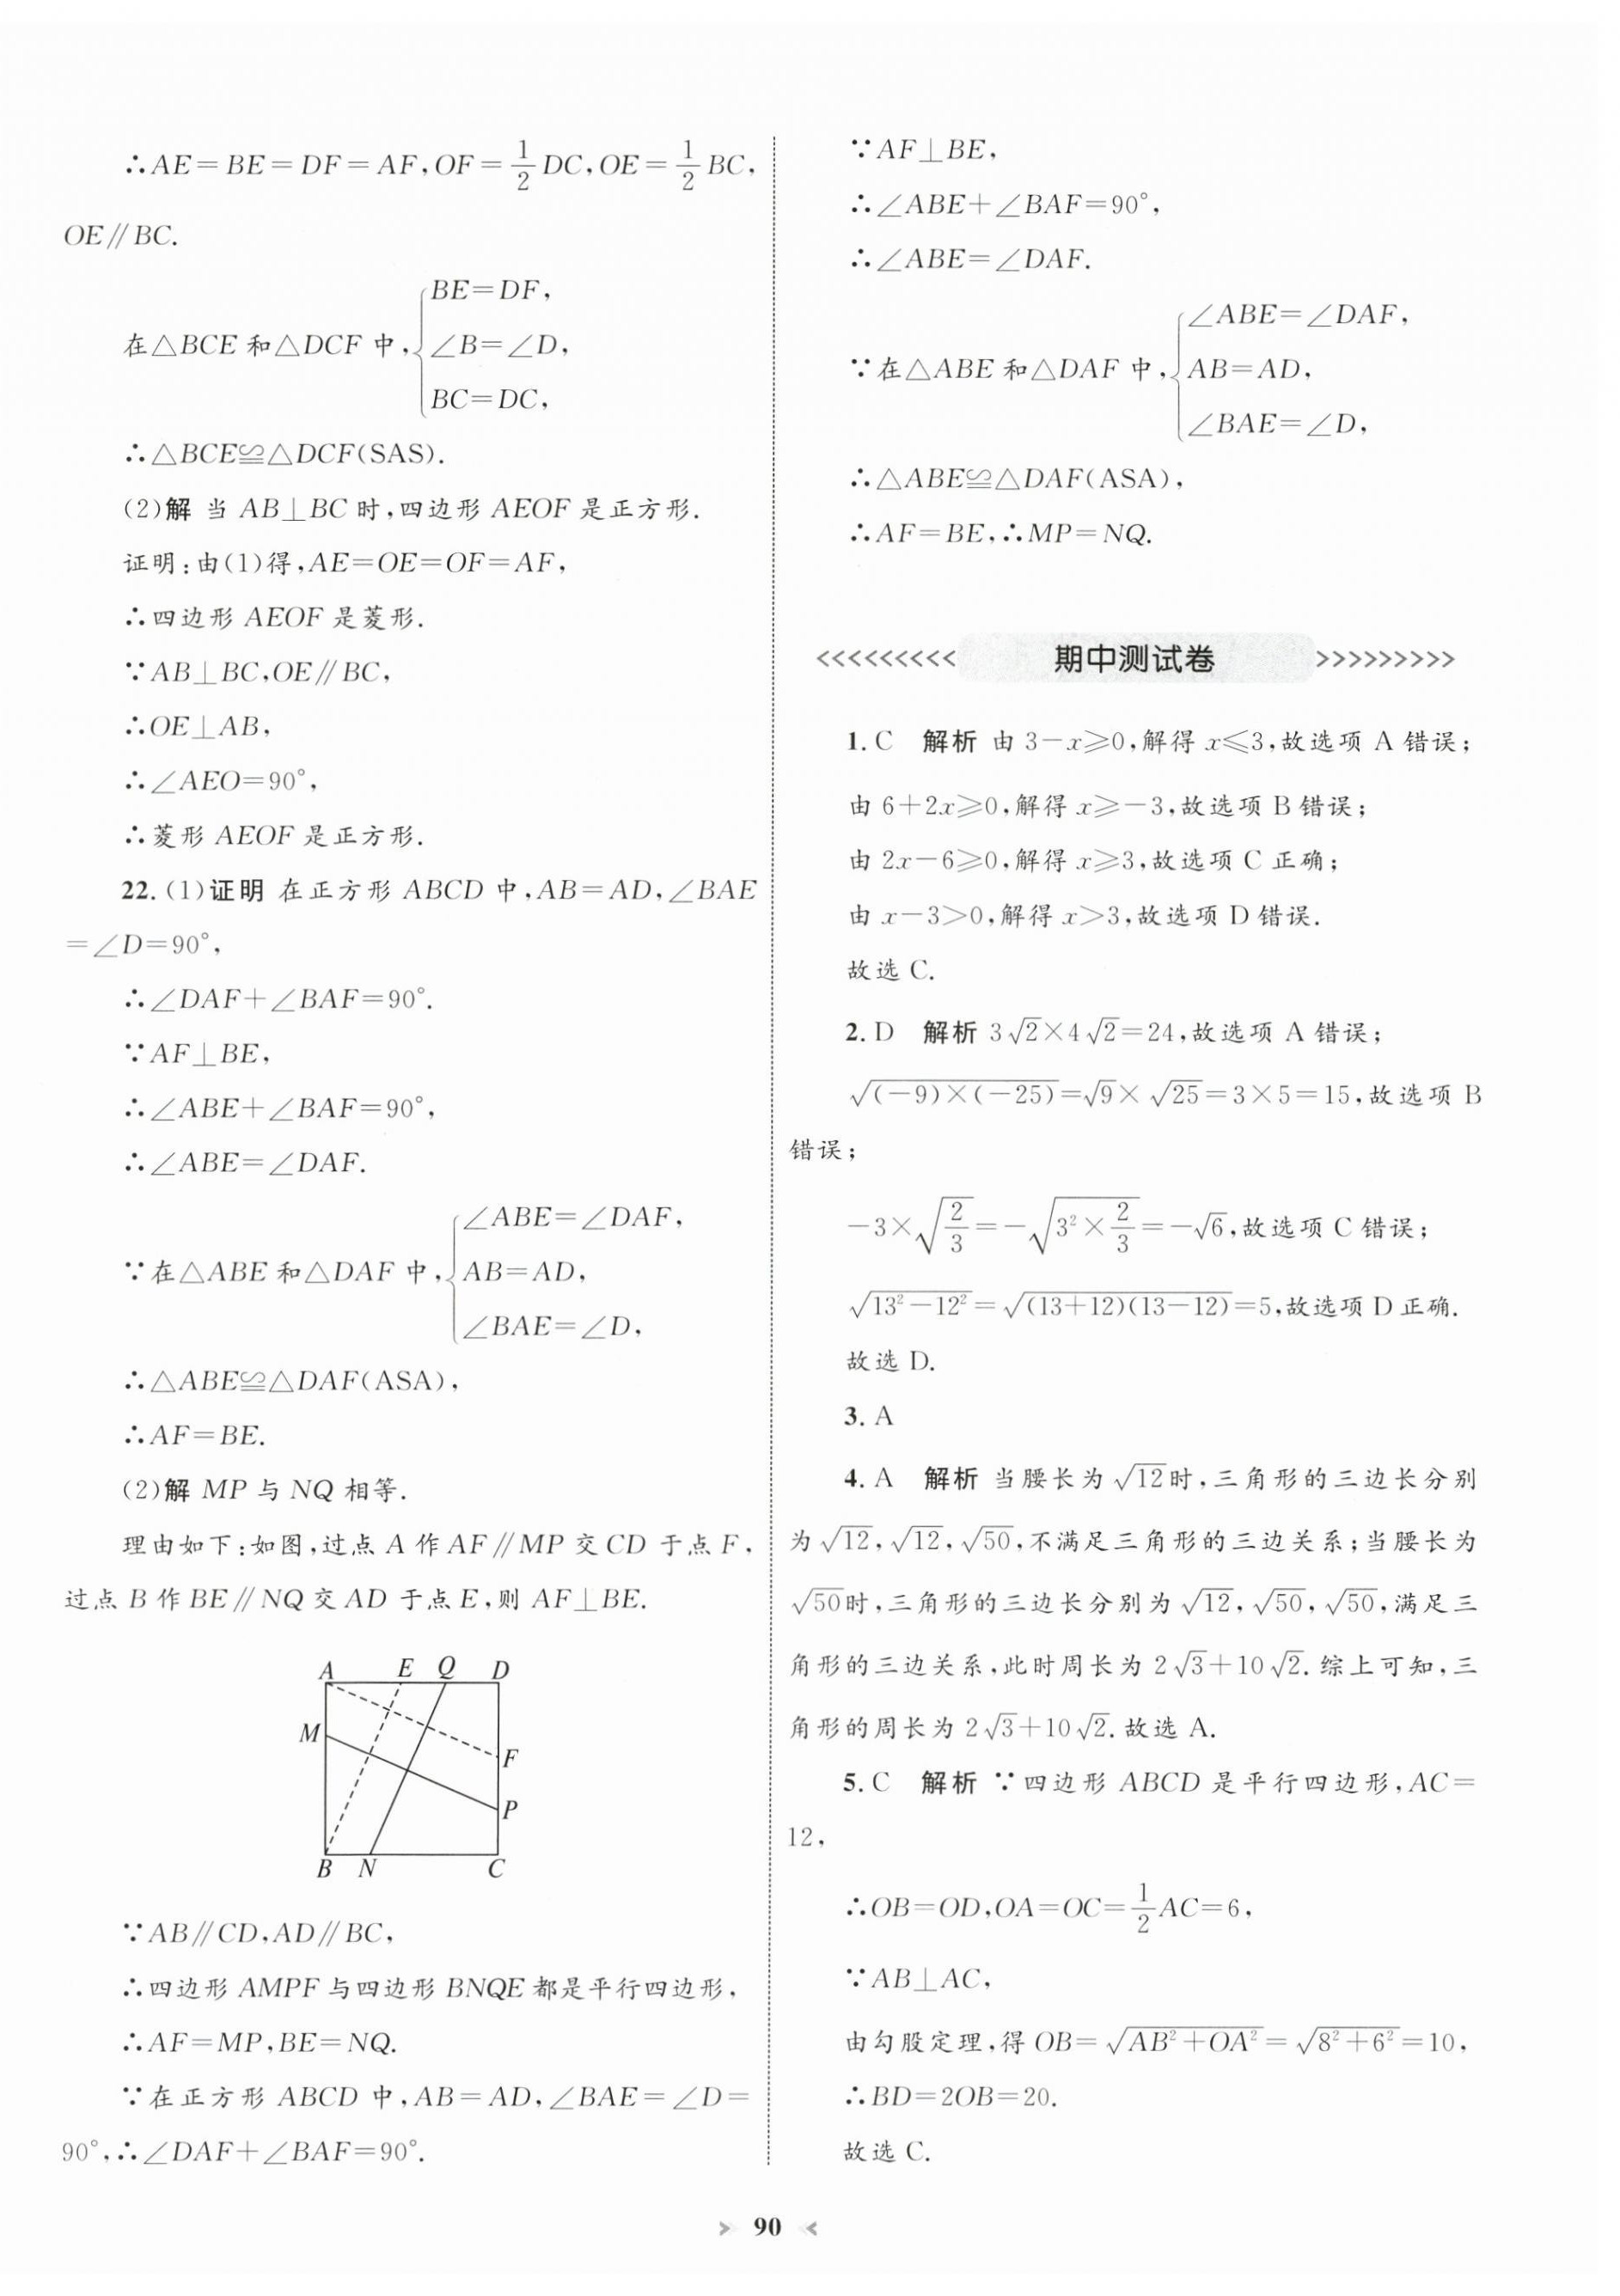 ∴AE=BE=DF=AF,OF=1/2 DC,OE=1/2 BC,
OE∥BC.
在△BCE 和△DCF 中,{BE=DF,
∠B=∠D,
BC=DC,
∴△BCE≌△DCF(SAS).
(2)解 当 AB⊥BC 时,四边形 AEOF 是正方形.
证明:由(1)得,AE=OE=OF=AF,
∴四边形 AEOF 是菱形.
∵AB⊥BC,OE∥BC,
∴OE⊥AB,
∴∠AEO=90°,
∴菱形 AEOF 是正方形.
22.(1)证明 在正方形 ABCD 中,AB=AD,∠BAE
=∠D=90°,
∴∠DAF+∠BAF=90°.
∵AF⊥BE,
∴∠ABE+∠BAF=90°,
∴∠ABE=∠DAF.
∵在△ABE 和△DAF 中,{∠ABE=∠DAF,
AB=AD,
∠BAE=∠D,
∴△ABE≌△DAF(ASA),
∴AF=BE.
(2)解 MP 与 NQ 相等.
理由如下:如图,过点 A 作 AF∥MP 交 CD 于点 F,
过点 B 作 BE∥NQ 交 AD 于点 E,则 AF⊥BE.
A E Q D
M
F
P
B N C
∵AB∥CD,AD∥BC,
∴四边形 AMPF 与四边形 BNQE 都是平行四边形,
∴AF=MP,BE=NQ.
∵在正方形 ABCD 中,AB=AD,∠BAE=∠D=
90°,∴∠DAF+∠BAF=90°.
∵AF⊥BE,
∴∠ABE+∠BAF=90°,
∴∠ABE=∠DAF.
∵在△ABE 和△DAF 中,{∠ABE=∠DAF,
AB=AD,
∠BAE=∠D,
∴△ABE≌△DAF(ASA),
∴AF=BE,∴MP=NQ.
期中测试卷
1. C 解析 由 3-x≥0,解得 x≤3,故选项 A 错误;
由 6+2x≥0,解得 x≥-3,故选项 B 错误;
由 2x-6≥0,解得 x≥3,故选项 C 正确;
由 x-3>0,解得 x>3,故选项 D 错误.
故选 C.
2. D 解析 3√2×4√2=24,故选项 A 错误;
√((-9)×(-25))=√9×√25=3×5=15,故选项 B
错误;
-3×√(2/3)=-√(3²×2/3)=-√6,故选项 C 错误;
√(13²-12²)=√((13+12)(13-12))=5,故选项 D 正确.
故选 D.
3. A
4. A 解析 当腰长为√12时,三角形的三边长分别
为√12,√12,√50,不满足三角形的三边关系;当腰长为
√50时,三角形的三边长分别为√12,√50,√50,满足三
角形的三边关系,此时周长为 2√3+10√2.综上可知,三
角形的周长为 2√3+10√2.故选 A.
5. C 解析 ∵四边形 ABCD 是平行四边形,AC=
12,
∴OB=OD,OA=OC=1/2 AC=6,
∵AB⊥AC,
由勾股定理,得 OB=√(AB²+OA²)=√(8²+6²)=10,
∴BD=2OB=20.
故选 C.
90